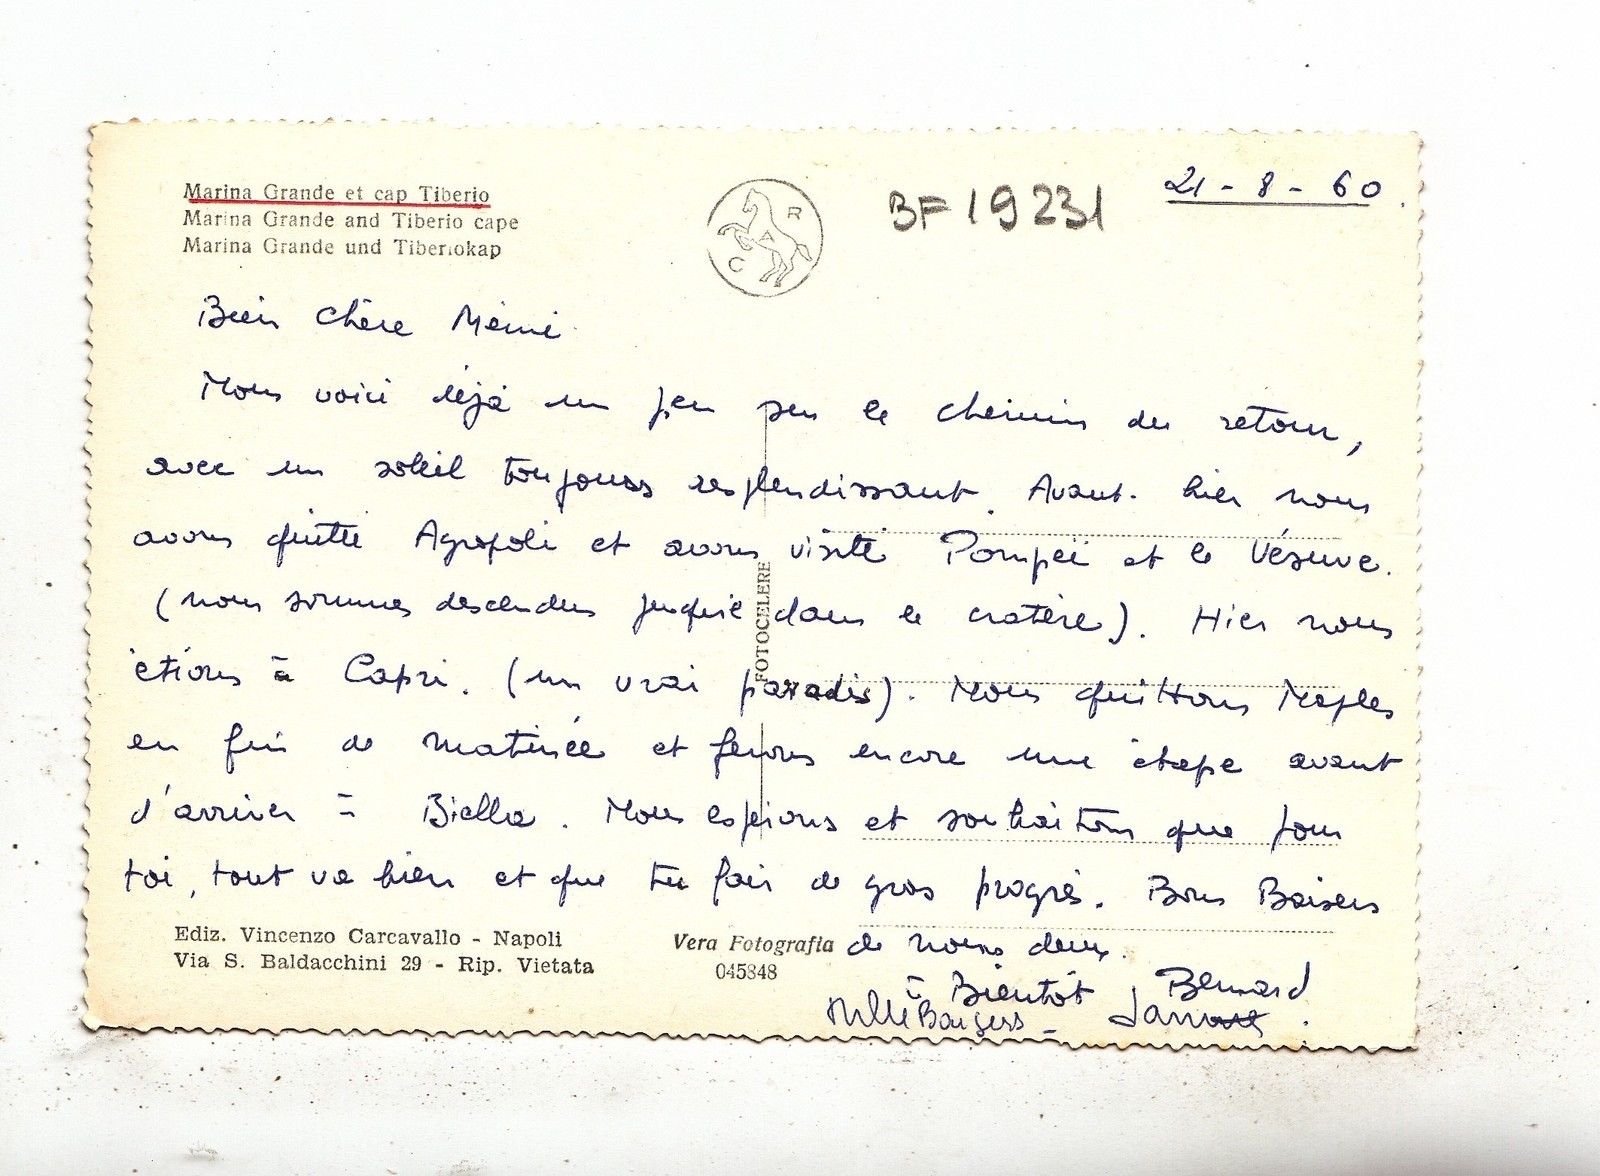 Marina Grande et cap Tiberio
Marina Grande and Tiberio cape
Marina Grande und Tiberiokap
R
A
C
BF 19231
21-8-60.
Bien chère Mémé
Nous voici déjà un peu sur le chemin du retour,
avec un soleil toujours resplendissant. Avant-hier nous
avons quitté Agropoli et avons visité Pompeï et le Vésuve.
(nous sommes descendus jusque dans le cratère). Hier nous
étions à Capri. (un vrai paradis). Nous quittons Naples
en fin de matinée et ferons encore une étape avant
d'arriver à Biella. Nous espérons et souhaitons que pour
toi, tout va bien et que tu fais de gros progrès. Bons Baisers
de nous deux.
à Bientôt Bernard
Mille Baisers -
FOTOCELERE
Ediz. Vincenzo Carcavallo - Napoli
Via S. Baldacchini 29 - Rip. Vietata
Vera Fotografia
045848